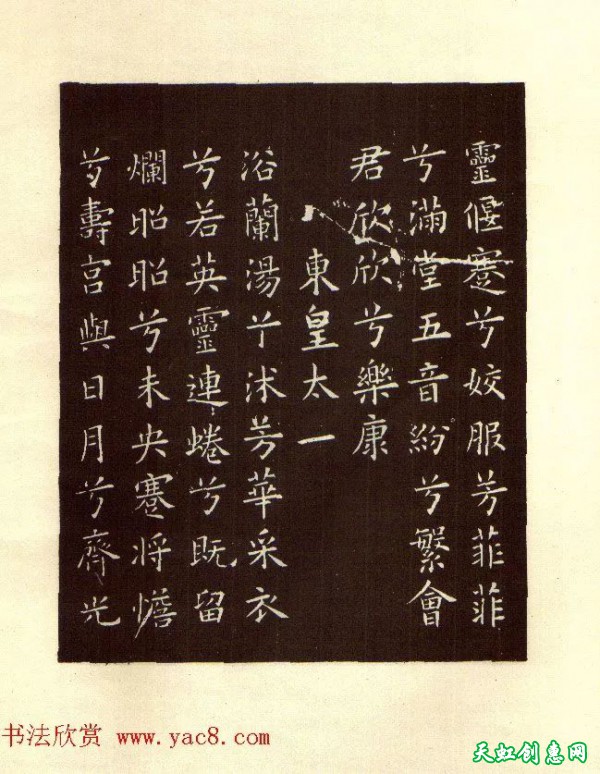 靈偃蹇兮姣服芳菲菲
兮滿堂五音紛兮繁會
君欣欣兮樂康
東皇太一
浴蘭湯兮沐芳華采衣
兮若英靈連蜷兮既留
爛昭昭兮未央蹇將憺
兮壽宮與日月兮齊光
书法欣赏 www.yac8.com
天虹创惠网